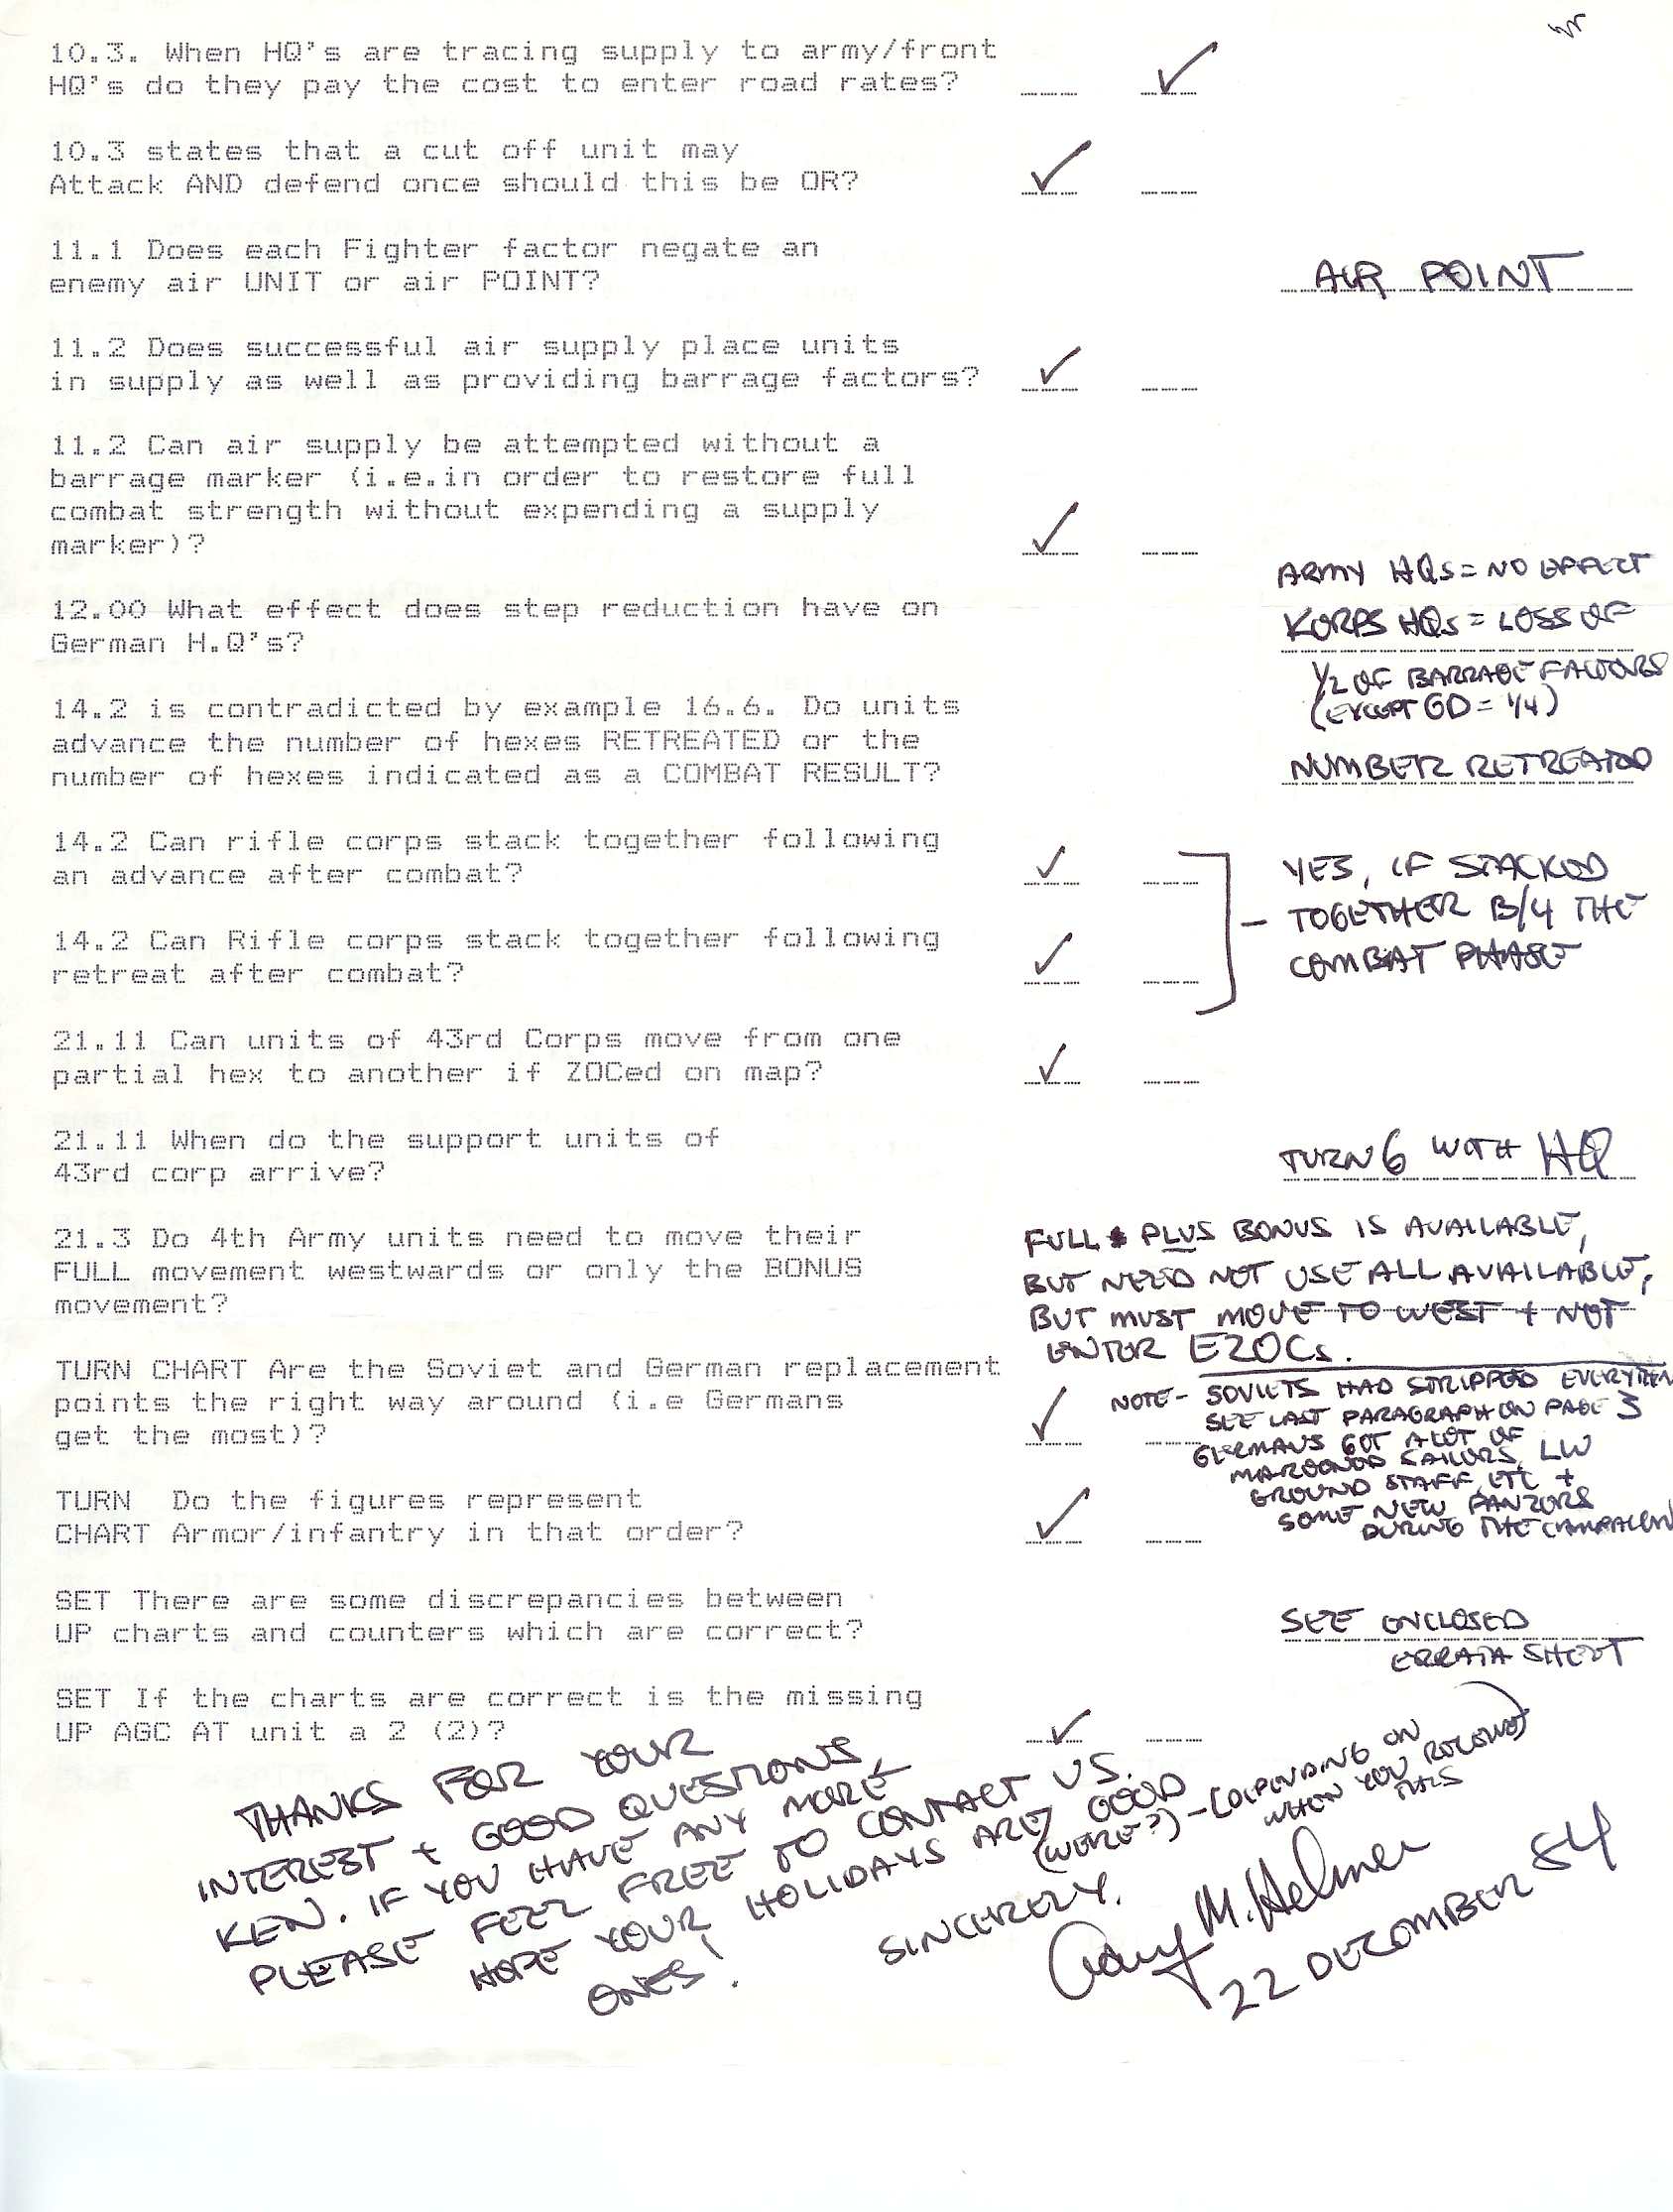 10.3. When HQ's are tracing supply to army/front
HQ's do they pay the cost to enter road rates? ___ _✓_
10.3 states that a cut off unit may
Attack AND defend once should this be OR? _✓_ ___
11.1 Does each Fighter factor negate an
enemy air UNIT or air POINT? AIR POINT
11.2 Does successful air supply place units
in supply as well as providing barrage factors? _✓_ ___
11.2 Can air supply be attempted without a
barrage marker (i.e.in order to restore full
combat strength without expending a supply
marker)? _✓_ ___
12.00 What effect does step reduction have on
German H.Q's?
ARMY HQs = NO EFFECT
KORPS HQs = LOSS OF
1/2 OF BARRAGE FACTORS
(EXCEPT GD = 1/4)
14.2 is contradicted by example 16.6. Do units
advance the number of hexes RETREATED or the
number of hexes indicated as a COMBAT RESULT? NUMBER RETREATED
14.2 Can rifle corps stack together following
an advance after combat? _✓_ ___
14.2 Can Rifle corps stack together following
retreat after combat? _✓_ ___
- YES, IF STACKED
TOGETHER B/4 THE
COMBAT PHASE
21.11 Can units of 43rd Corps move from one
partial hex to another if ZOCed on map? _✓_ ___
21.11 When do the support units of
43rd corp arrive? TURN 6 WITH HQ
21.3 Do 4th Army units need to move their
FULL movement westwards or only the BONUS
movement?
FULL PLUS BONUS IS AVAILABLE,
BUT NEED NOT USE ALL AVAILABLE,
BUT MUST MOVE TO WEST + NOT
ENTER EZOCs.
TURN CHART Are the Soviet and German replacement
points the right way around (i.e Germans
get the most)? _✓_ ___
NOTE - SOVIETS HAD STRIPPED
SEE LAST PARAGRAPH ON PAGE 3
GERMANS GOT A LOT OF
MAROONED SAILORS, LW
GROUND STAFF, ETC +
SOME NEW PANZERS
DURING THE CAMPAIGN
TURN Do the figures represent
CHART Armor/infantry in that order? _✓_ ___
SET There are some discrepancies between
UP charts and counters which are correct? SEE ENCLOSED
ERRATA SHEET
SET If the charts are correct is the missing
UP AGC AT unit a 2 (2)? _✓_ ___
THANKS FOR YOUR
INTEREST + GOOD QUESTIONS,
KEN. IF YOU HAVE ANY MORE
PLEASE FEEL FREE TO CONTACT US.
HOPE YOUR HOLIDAYS ARE GOOD
(WERE?) - (DEPENDING ON
WHEN YOU RECEIVED
THIS)
ONES!
SINCERELY.
Gary M. Helmer
22 DECEMBER 84